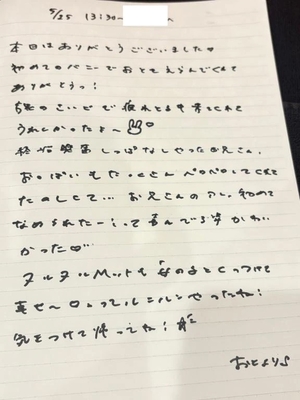 5/25 13:30~
本日はありがとうございました♡
初めてのバニーでおとをえらんでくれて
ありがとうっ!
のこいどで疲れてる中来てくれて
うれしかったよ~♡
終始発しっぱなしやったお兄さん。
おっぱいもたっくさんペロペロしてくれて
たのしくて… お兄さんの 初めて
なめられたー!って喜んでる姿かわい
かった♡
ヌルヌルMットも のようとくっつけて
幸せ~ ってルンルンやったね!
気をつけて帰ってね!
おとより